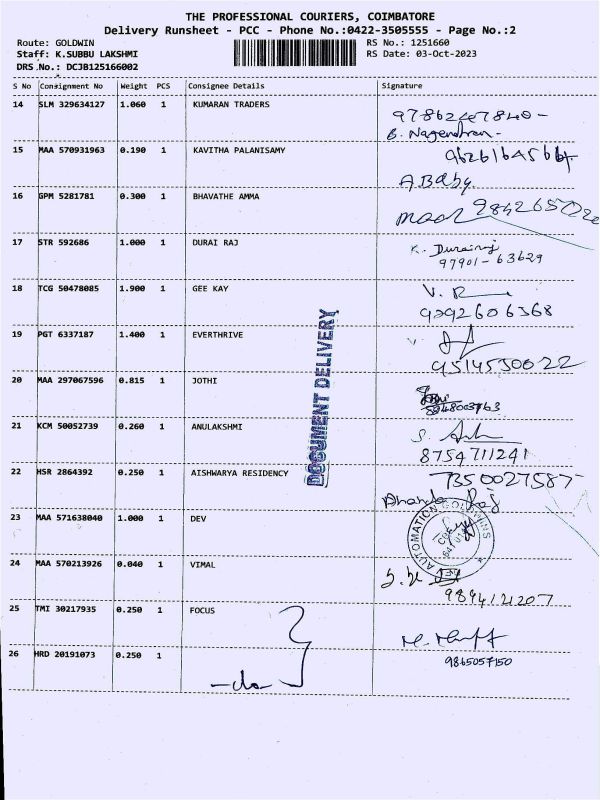 THE PROFESSIONAL COURIERS, COIMBATORE
Delivery Runsheet - PCC - Phone No.:0422-3505555 - Page No.:2
Route: GOLDWIN RS No.: 1251660
Staff: K.SUBBU LAKSHMI RS Date: 03-Oct-2023
DRS No.: DCJB125166002
S No Consignment No Weight PCS Consignee Details Signature
14 SLM 329634127 1.060 1 KUMARAN TRADERS
B. Nagendran
15 MAA 570931963 0.190 1 KAVITHA PALANISAMY
A Baby
16 GPM 5281781 0.300 1 BHAVATHE AMMA
17 STR 592686 1.000 1 DURAI RAJ
K. Durairaj
97901-63629
18 TCG 50478085 1.900 1 GEE KAY
V. R
9092606368
19 PGT 6337187 1.400 1 EVERTHRIVE
9514530022
20 MAA 297067596 0.815 1 JOTHI
21 KCM 50052739 0.260 1 ANULAKSHMI
8754711241
22 HSR 2864392 0.250 1 AISHWARYA RESIDENCY
7350027587
23 MAA 571638040 1.000 1 DEV
24 MAA 570213926 0.040 1 VIMAL
9894121207
25 TMI 30217935 0.250 1 FOCUS
26 HRD 20191073 0.250 1
-do-
9865057150
DOCUMENT DELIVERY